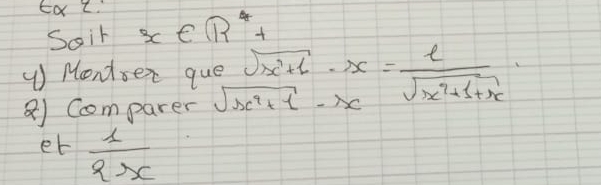 Ex 2:
Soit x ∈ ℝ*+
1) Montrer que √(x²+1) - x = 1/(√(x²+1)+x).
2) Comparer √(x²+1) - x
et 1/(2x)